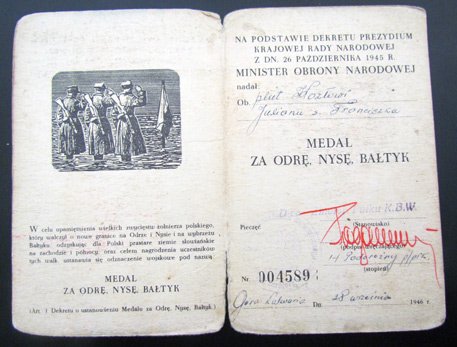 W celu upamiętnienia wielkich zwycięstw żołnierza polskiego,
który walczył o nowe granice na Odrze i Nysie i na wybrzeżu
Bałtyku, odzyskując dla Polski prastare ziemie słowiańskie
na zachodzie i północy oraz celem nagrodzenia uczestników
tych walk ustanawia się odznaczenie wojskowe pod nazwą:
MEDAL
ZA ODRĘ, NYSĘ, BAŁTYK
(Art. 1 Dekretu o ustanowieniu Medalu za Odrę, Nysę, Bałtyk.)
NA PODSTAWIE DEKRETU PREZYDIUM
KRAJOWEJ RADY NARODOWEJ
Z DN. 26 PAŹDZIERNIKA 1945 R.
MINISTER OBRONY NARODOWEJ
nadał:
Ob.
s. Franciszka
MEDAL
ZA ODRĘ, NYSĘ, BAŁTYK
K.B.W.
Pieczęć
(Stanowisko)
(podpis
(stopień)
Nr. 004589
Dn. 28 września 1946 r.